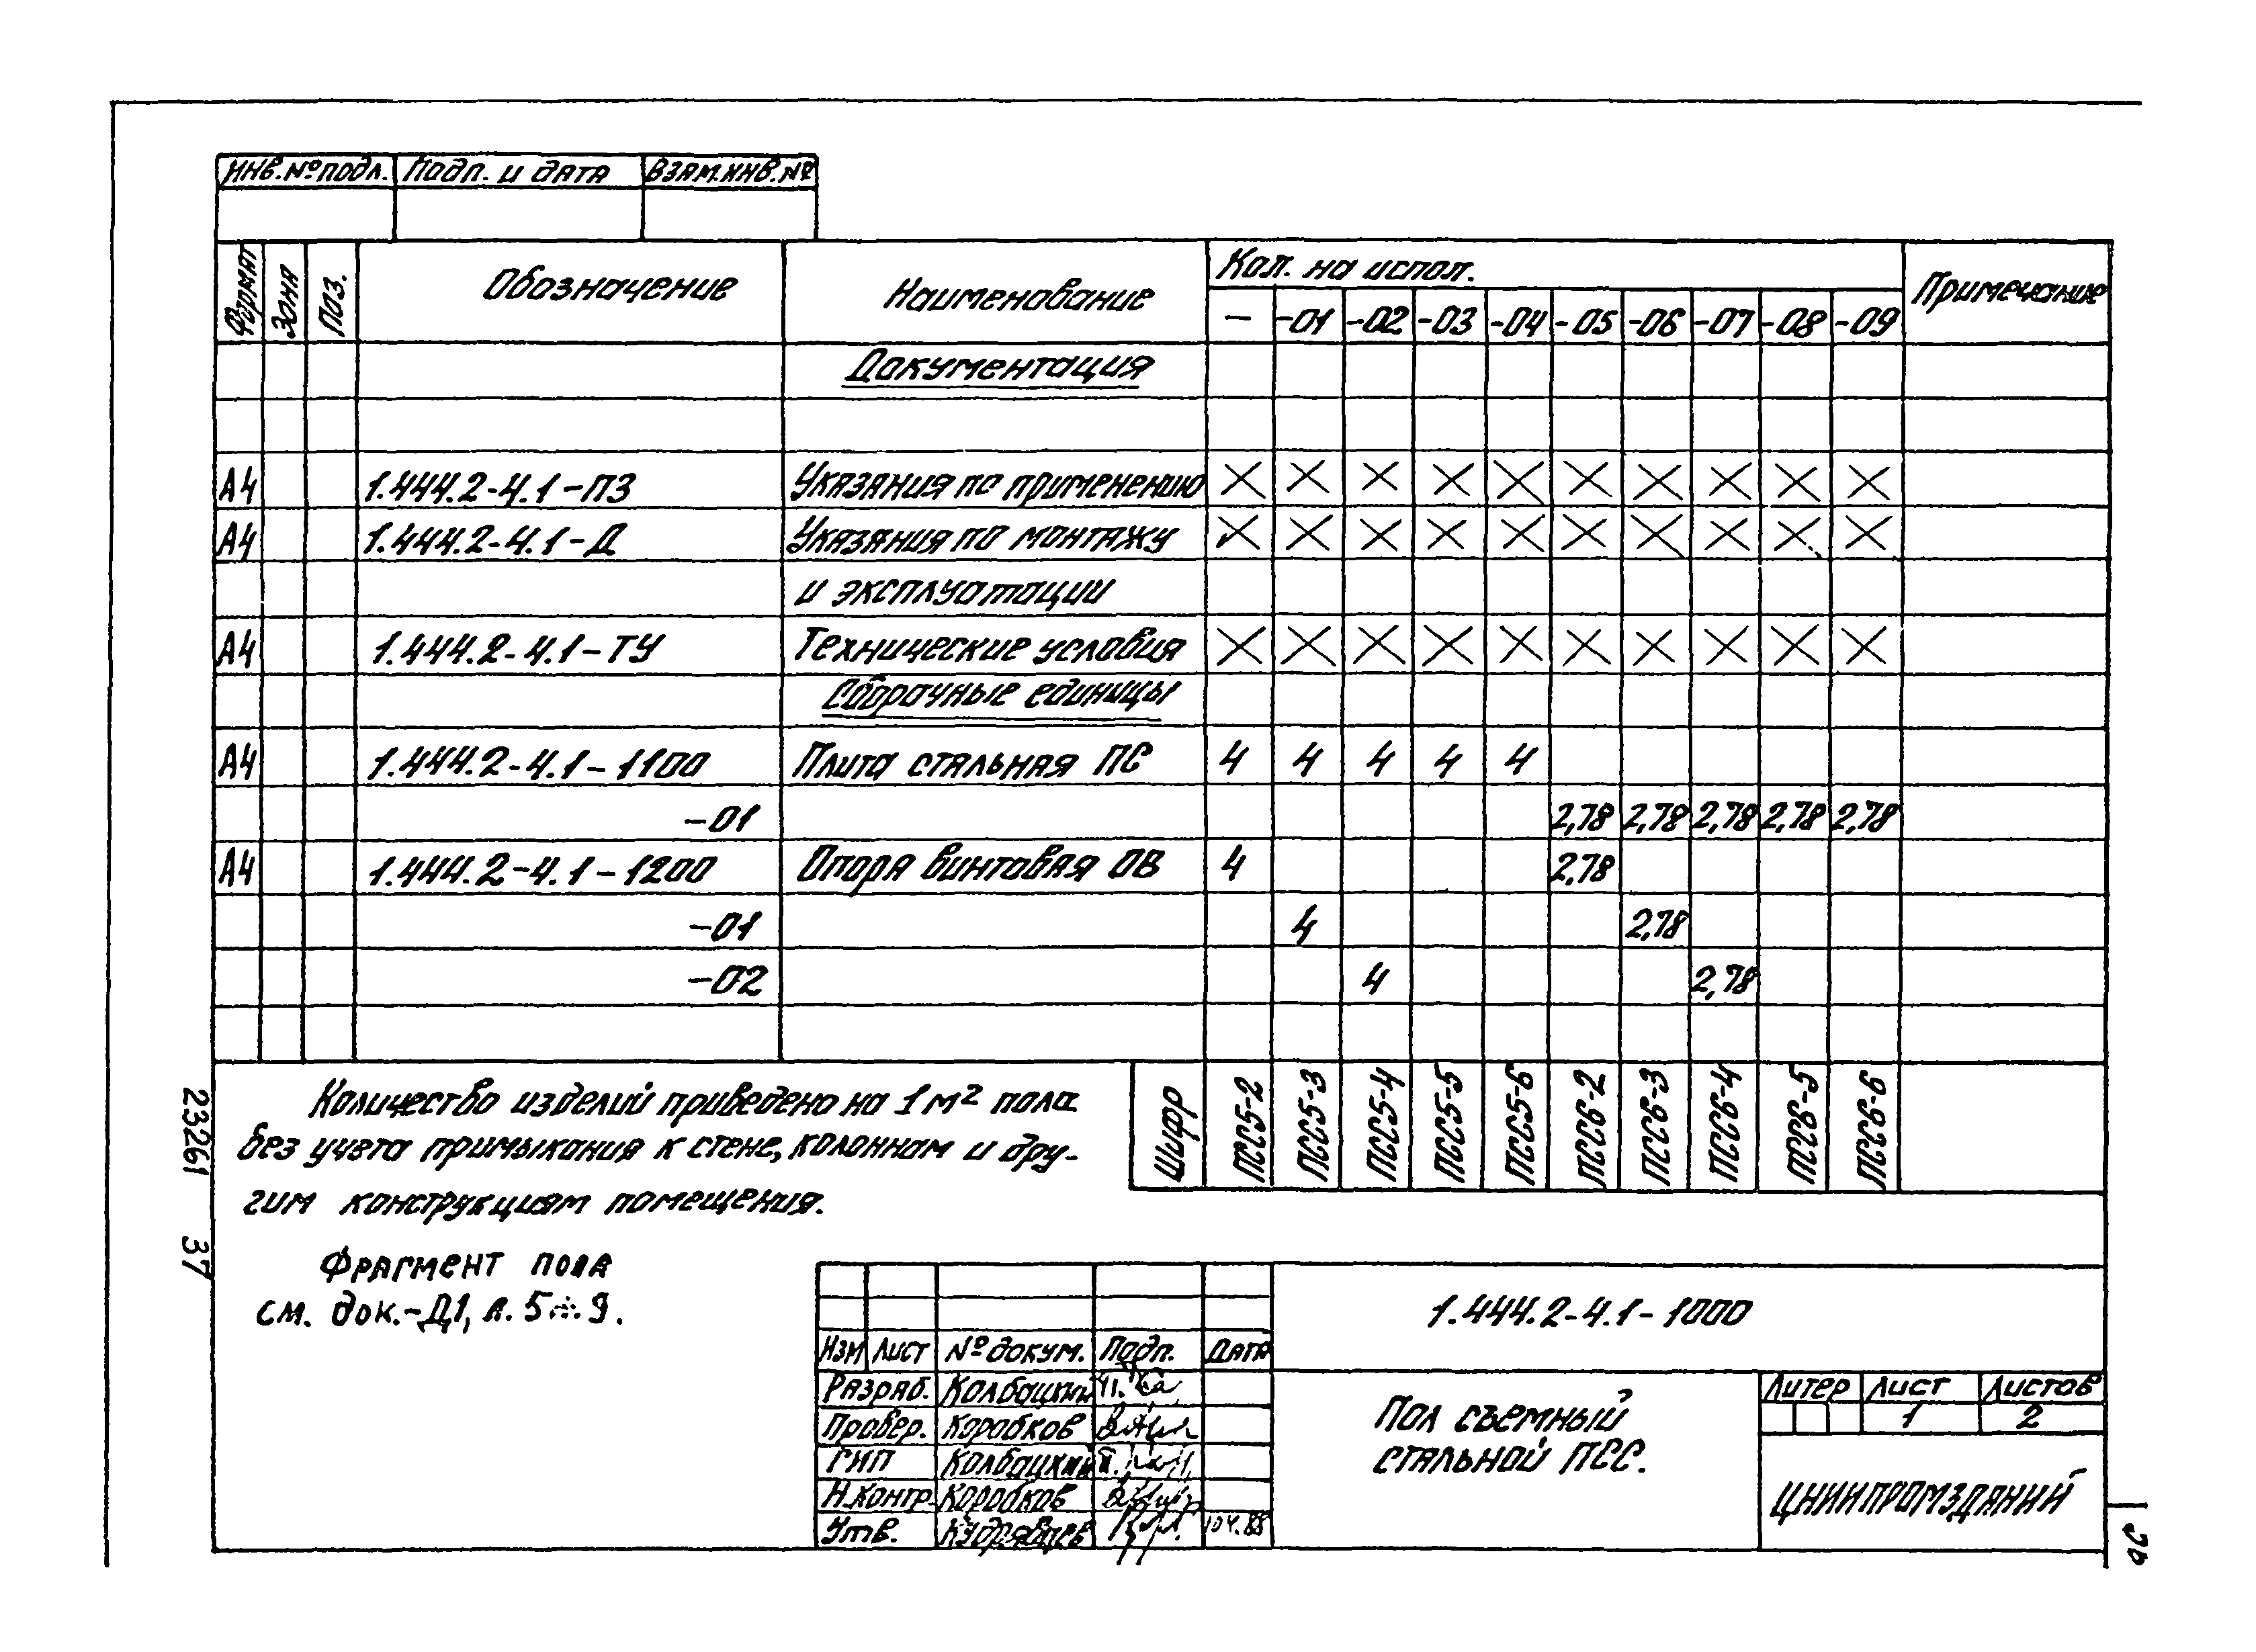 Инв.№ подл. Подп. и дата Взам.инв.№
Формат Зона Поз. Обозначение Наименование Кол. на испол. Примечание
— -01 -02 -03 -04 -05 -06 -07 -08 -09
Документация
А4 1.444.2-4.1-ПЗ Указания по применению X X X X X X X X X X
А4 1.444.2-4.1-Д Указания по монтажу X X X X X X X X X X
и эксплуатации
А4 1.444.2-4.1-ТУ Технические условия X X X X X X X X X X
Сборочные единицы
А4 1.444.2-4.1-1100 Плита стальная ПС 4 4 4 4 4
-01 2,78 2,78 2,78 2,78 2,78
А4 1.444.2-4.1-1200 Опора винтовая ОВ 4 2,78
-01 4 2,78
-02 4 2,78
Шифр ПСС5-2 ПСС5-3 ПСС5-4 ПСС5-5 ПСС5-6 ПСС6-2 ПСС6-3 ПСС6-4 ПСС6-5 ПСС6-6
Количество изделий приведено на 1 м² пола
без учета примыкания к стене, колоннам и дру-
гим конструкциям помещения.
Фрагмент пола
см. док.-Д1, л. 5÷9.
23261 37
1.444.2-4.1-1000
Изм Лист № докум. Подп. Дата
Разраб. Колбацкий
Провер. Коробков
ГИП Колбацкий
Н.контр. Коробков
Утв. Кудрявцев 04.88
Пол съемный
стальной ПСС.
Литер Лист Листов
1 2
ЦНИИПРОМЗДАНИЙ
36